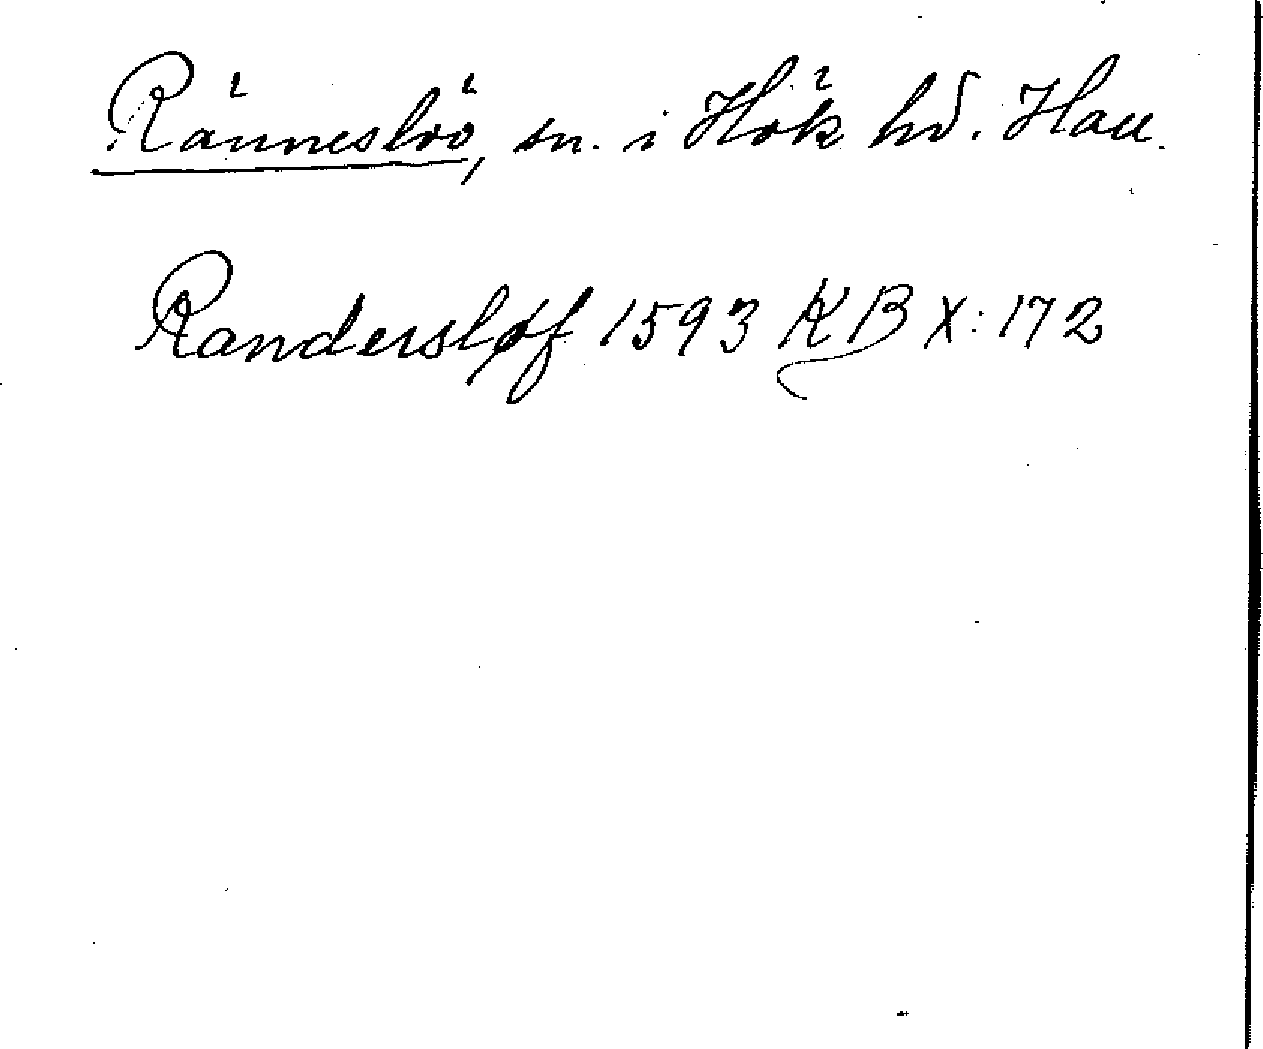 Ränneslöv, sn. i Hök hd. Hall.
Randersløf 1593 KB X: 172